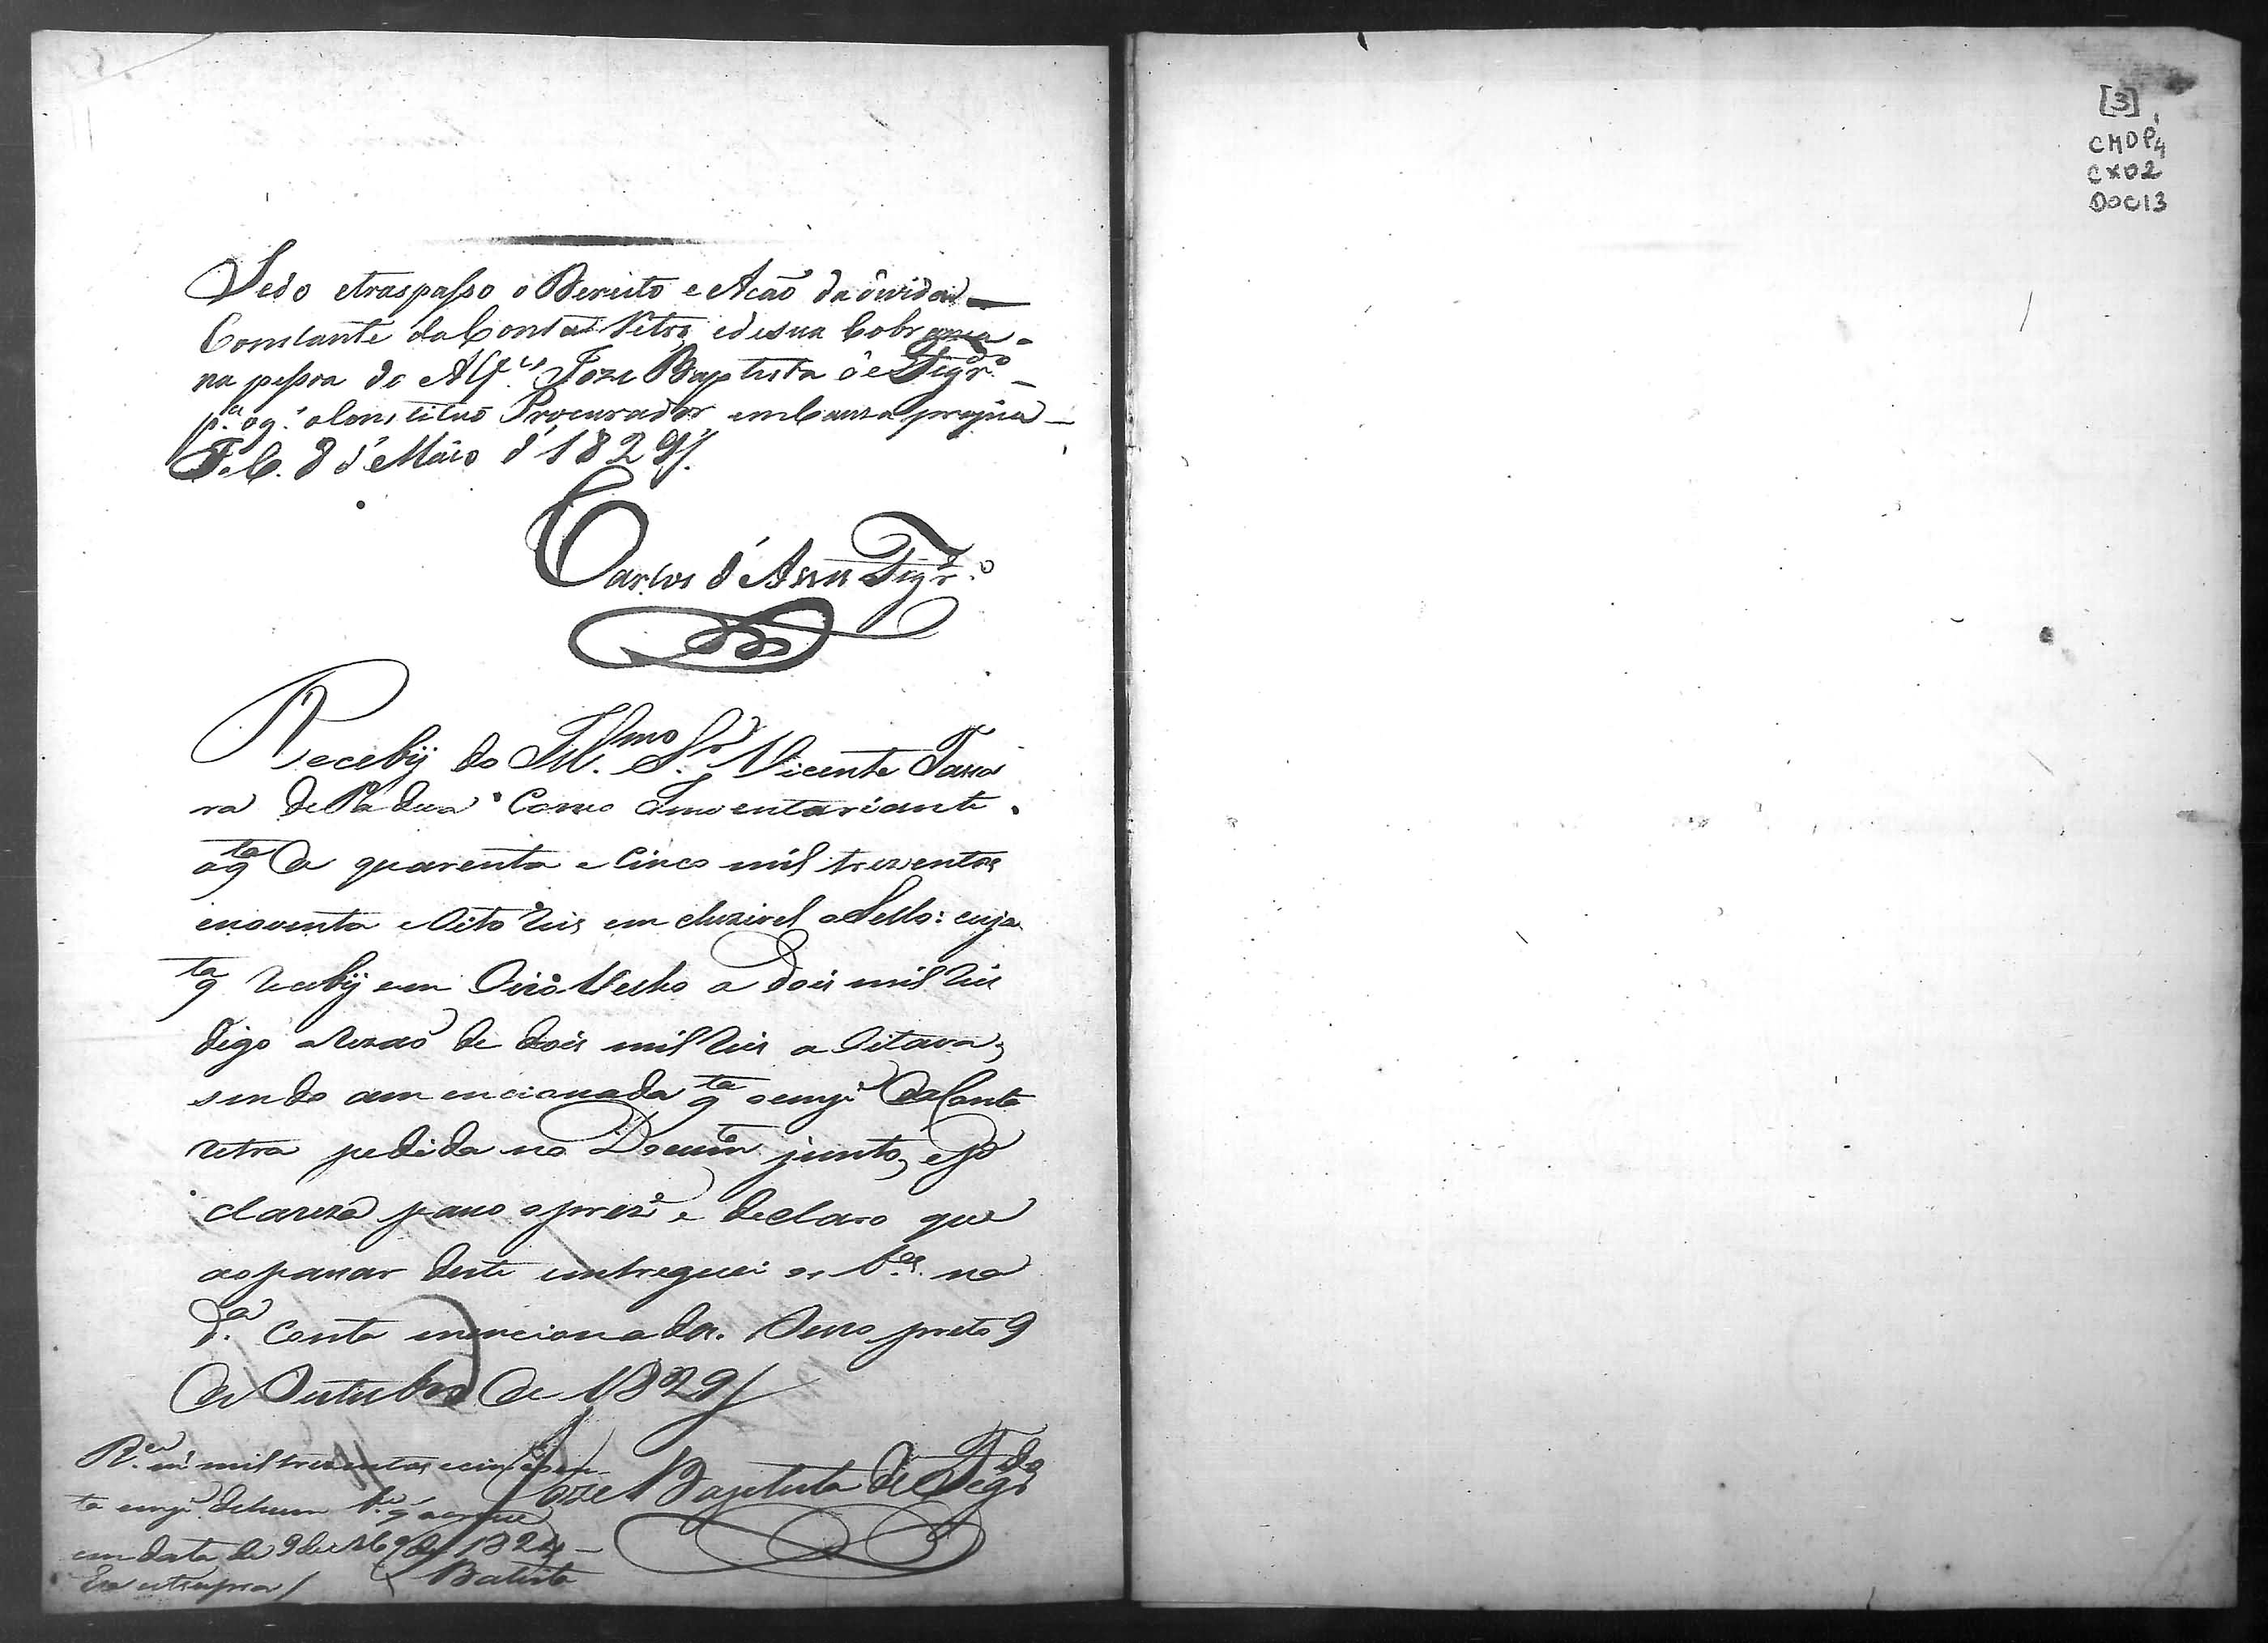 Sedo etraspasso o Dereito e Acão da divida
Constante da Conta Retro, edesua Cobrança
na pessoa do Alf.es Joze Baptista de Figr.do
p.a oq.' o Constituo Procurador em Cauza propria
F. C. 8 d' Maio d' 1829//.
Carlos d' Assis Figr.do
Recebÿ do Ill.mo S.r Vicente
ra de Padua Como Inventariante
a q.ta de quarenta e Cinco mil trezentos
enoventa e Oito Reis em cluzivel o Sello: cuja
q.ta Recebÿ em Oiro Velho a dois mil Reis
digo a Rezão de dois mil Reis a Oitava,
sendo amencionada q.ta o emp.e da Conta
retra pedida no Docum.to junto, e p.a
clareza passo o prez.e e declaro que
ao passar deste entreguei os C.os na
d.a Conta mencionada. Ouro preto 9
de Outubro de 1829//
Joze Baptista de Figr.do
mil trezentos ecincoen
ta de hum
em data de 9 de de 1824
Era utsupra/ Batista
[3]
CMOP
CX02
DOC13